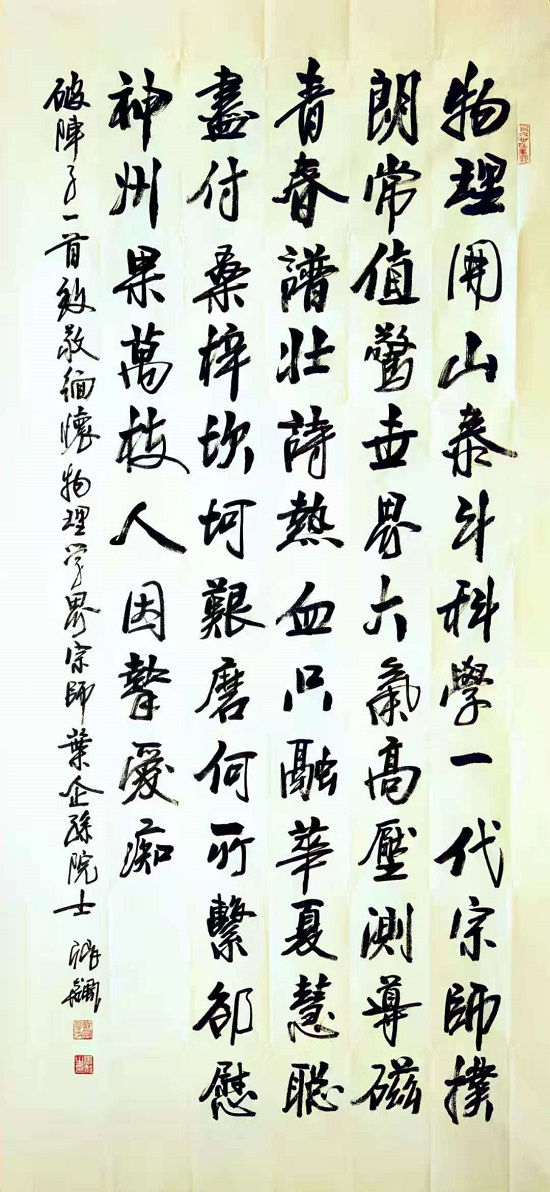 物理開山泰斗科學一代宗師撲
朗常值驚世界六氣高壓測導磁
青春譜壯詩熱血只融華夏慧聰
盡付桑梓坎坷艱磨何所繫卻慰
神州果萬枝人因摯愛痴
破陣子一首致敬緬懷物理学界宗師葉企孫院士